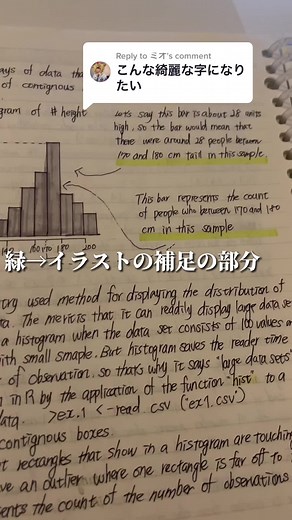 Reply to ミオ's comment
こんな綺麗な字になり
たい
ays of data tha
of contignous
gram of #height
Let's say this bar is about 28 units
high, so the bar would mean that
there were around 28 people between
170 and 180 cm tall in this sample
This bar represents the count
of people who between 170 and 180
cm in this sample
160 170 180 200
緑→イラストの補足の部分
try used method for displaying the distribution of
ta. The merit is that it can reddily display large data se
a histogram when the data set consists of 100 values or
with small smaple. But histogram saves the reader time
of obsenation. so that's why it says "large data sets"
in R by the application of the function "hist" to a
data. >ex.1 <- read csv ("ex1.csv")
contignous boxes.
t rectangles that show in a histogram are touching
ve an outlier where one rectangle is far off to
sents the count of the number of obsenations